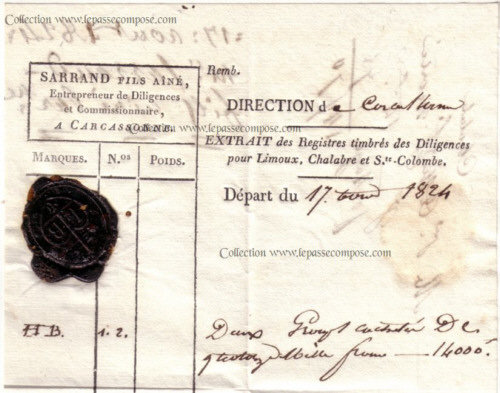 Collection www.lepassecompose.com
17 août 1824
SARRAND FILS AÎNÉ,
Entrepreneur de Diligences
et Commissionnaire,
A CARCASSONNE.
Collection www.lepassecompose.com
MARQUES. N.os POIDS.
HB. 1. 2.
Remb.
DIRECTION de Carcassonne
EXTRAIT des Registres timbrés des Diligences
pour Limoux, Chalabre et S.te-Colombe.
Départ du 17 août 1824
Collection www.lepassecompose.com
Deux Groups cachetés De
quatorze Mille francs — 14000f.
Collection www.lepassecompose.com